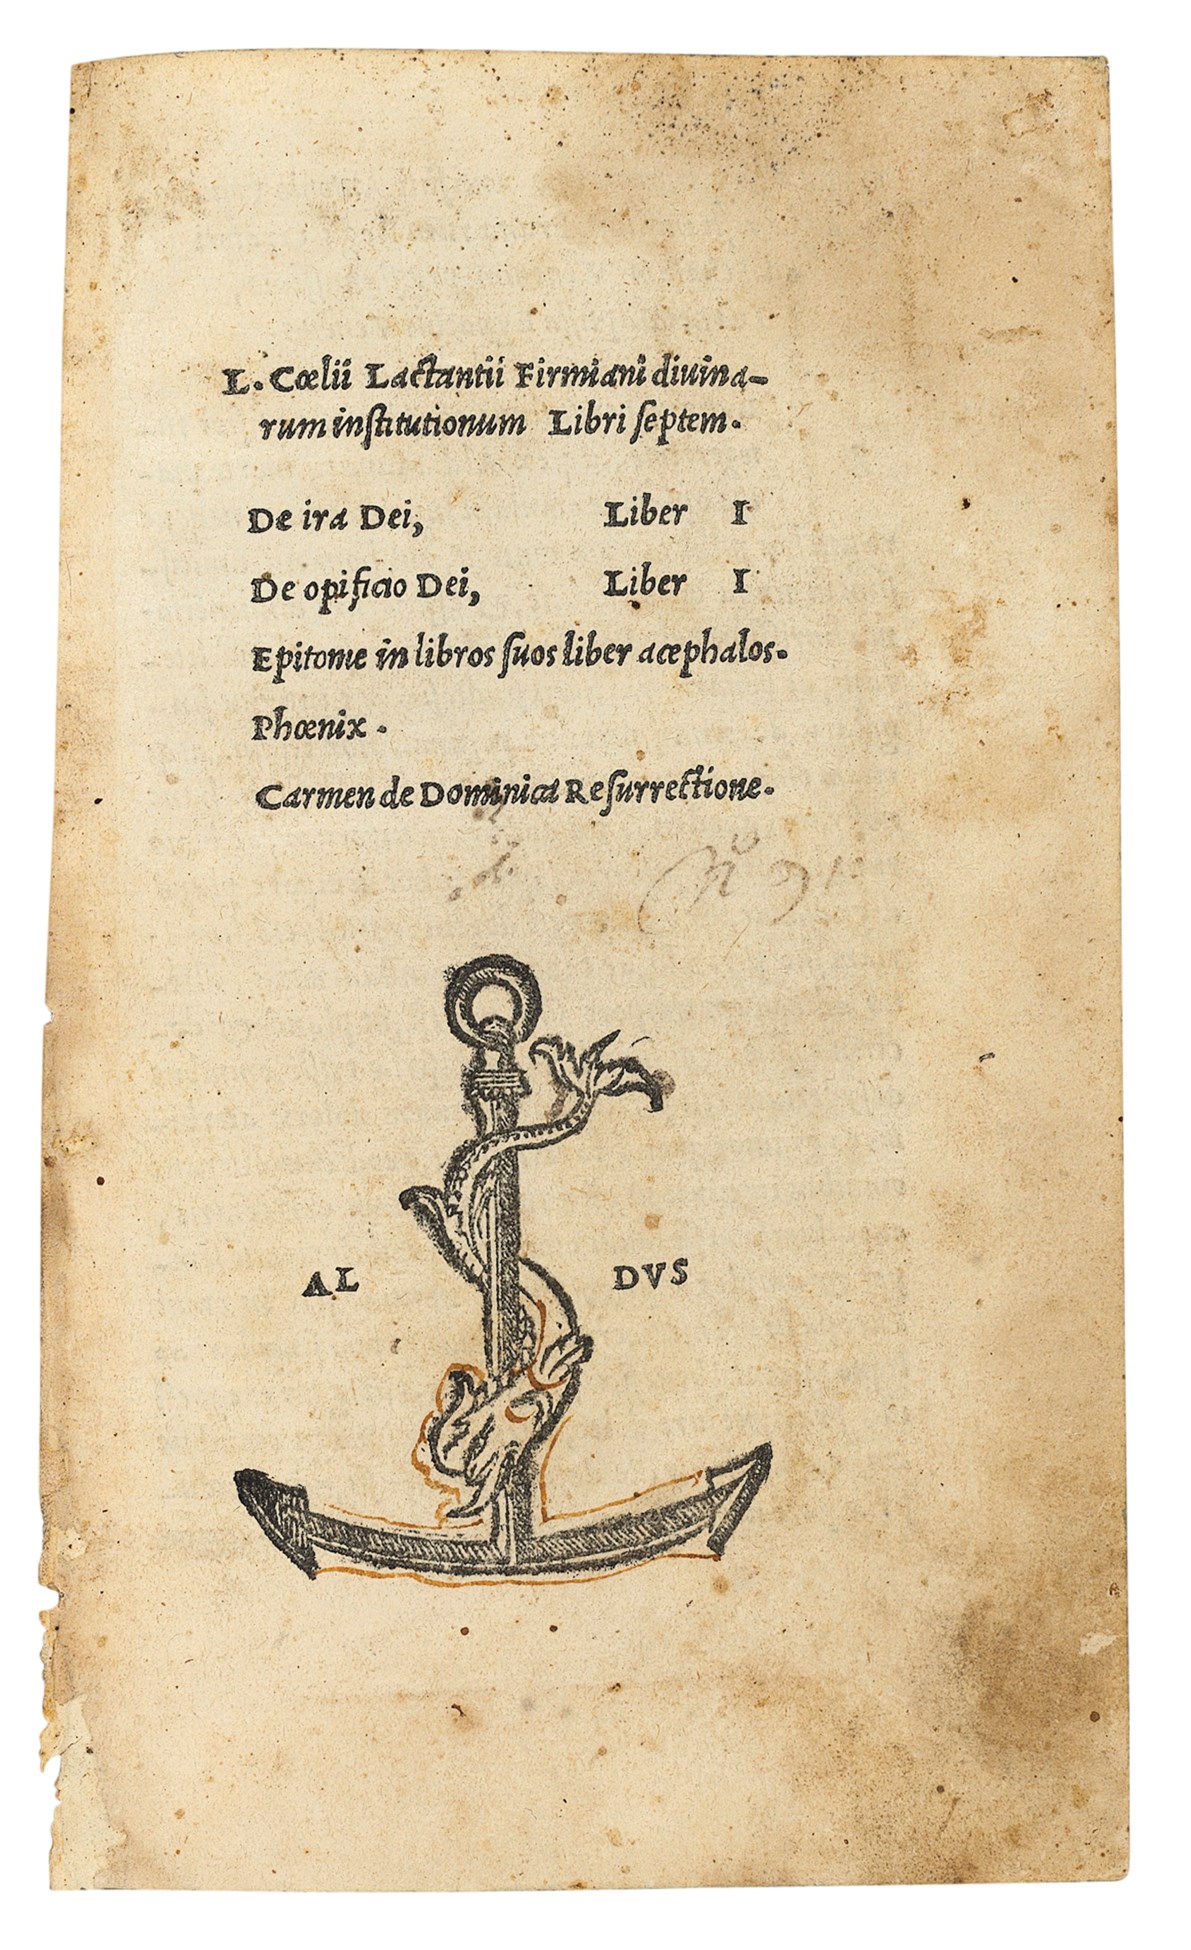 L. Cœlii Lactantii Firmiani diuina-
rum inſtitutionum Libri ſeptem.
De ira Dei, Liber I
De opificio Dei, Liber I
Epitome in libros ſuos liber acephalos.
Phœnix.
Carmen de Dominica Reſurrectione.
AL DVS